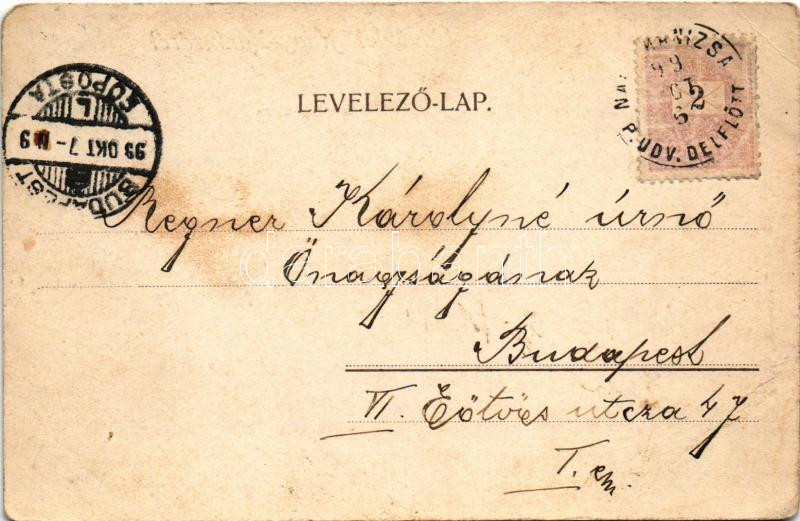 LEVELEZŐ-LAP.
NA KANIZSA
99
OKT
6
P.UDV. DELFLÖTT
2
BUDAPEST
99 OKT 7 - N 9
FŐPOSTA
Regner Károlyné úrnő
Önagyságának
Budapest
VI. Eötvös utcza 47
I. em.
darabanth